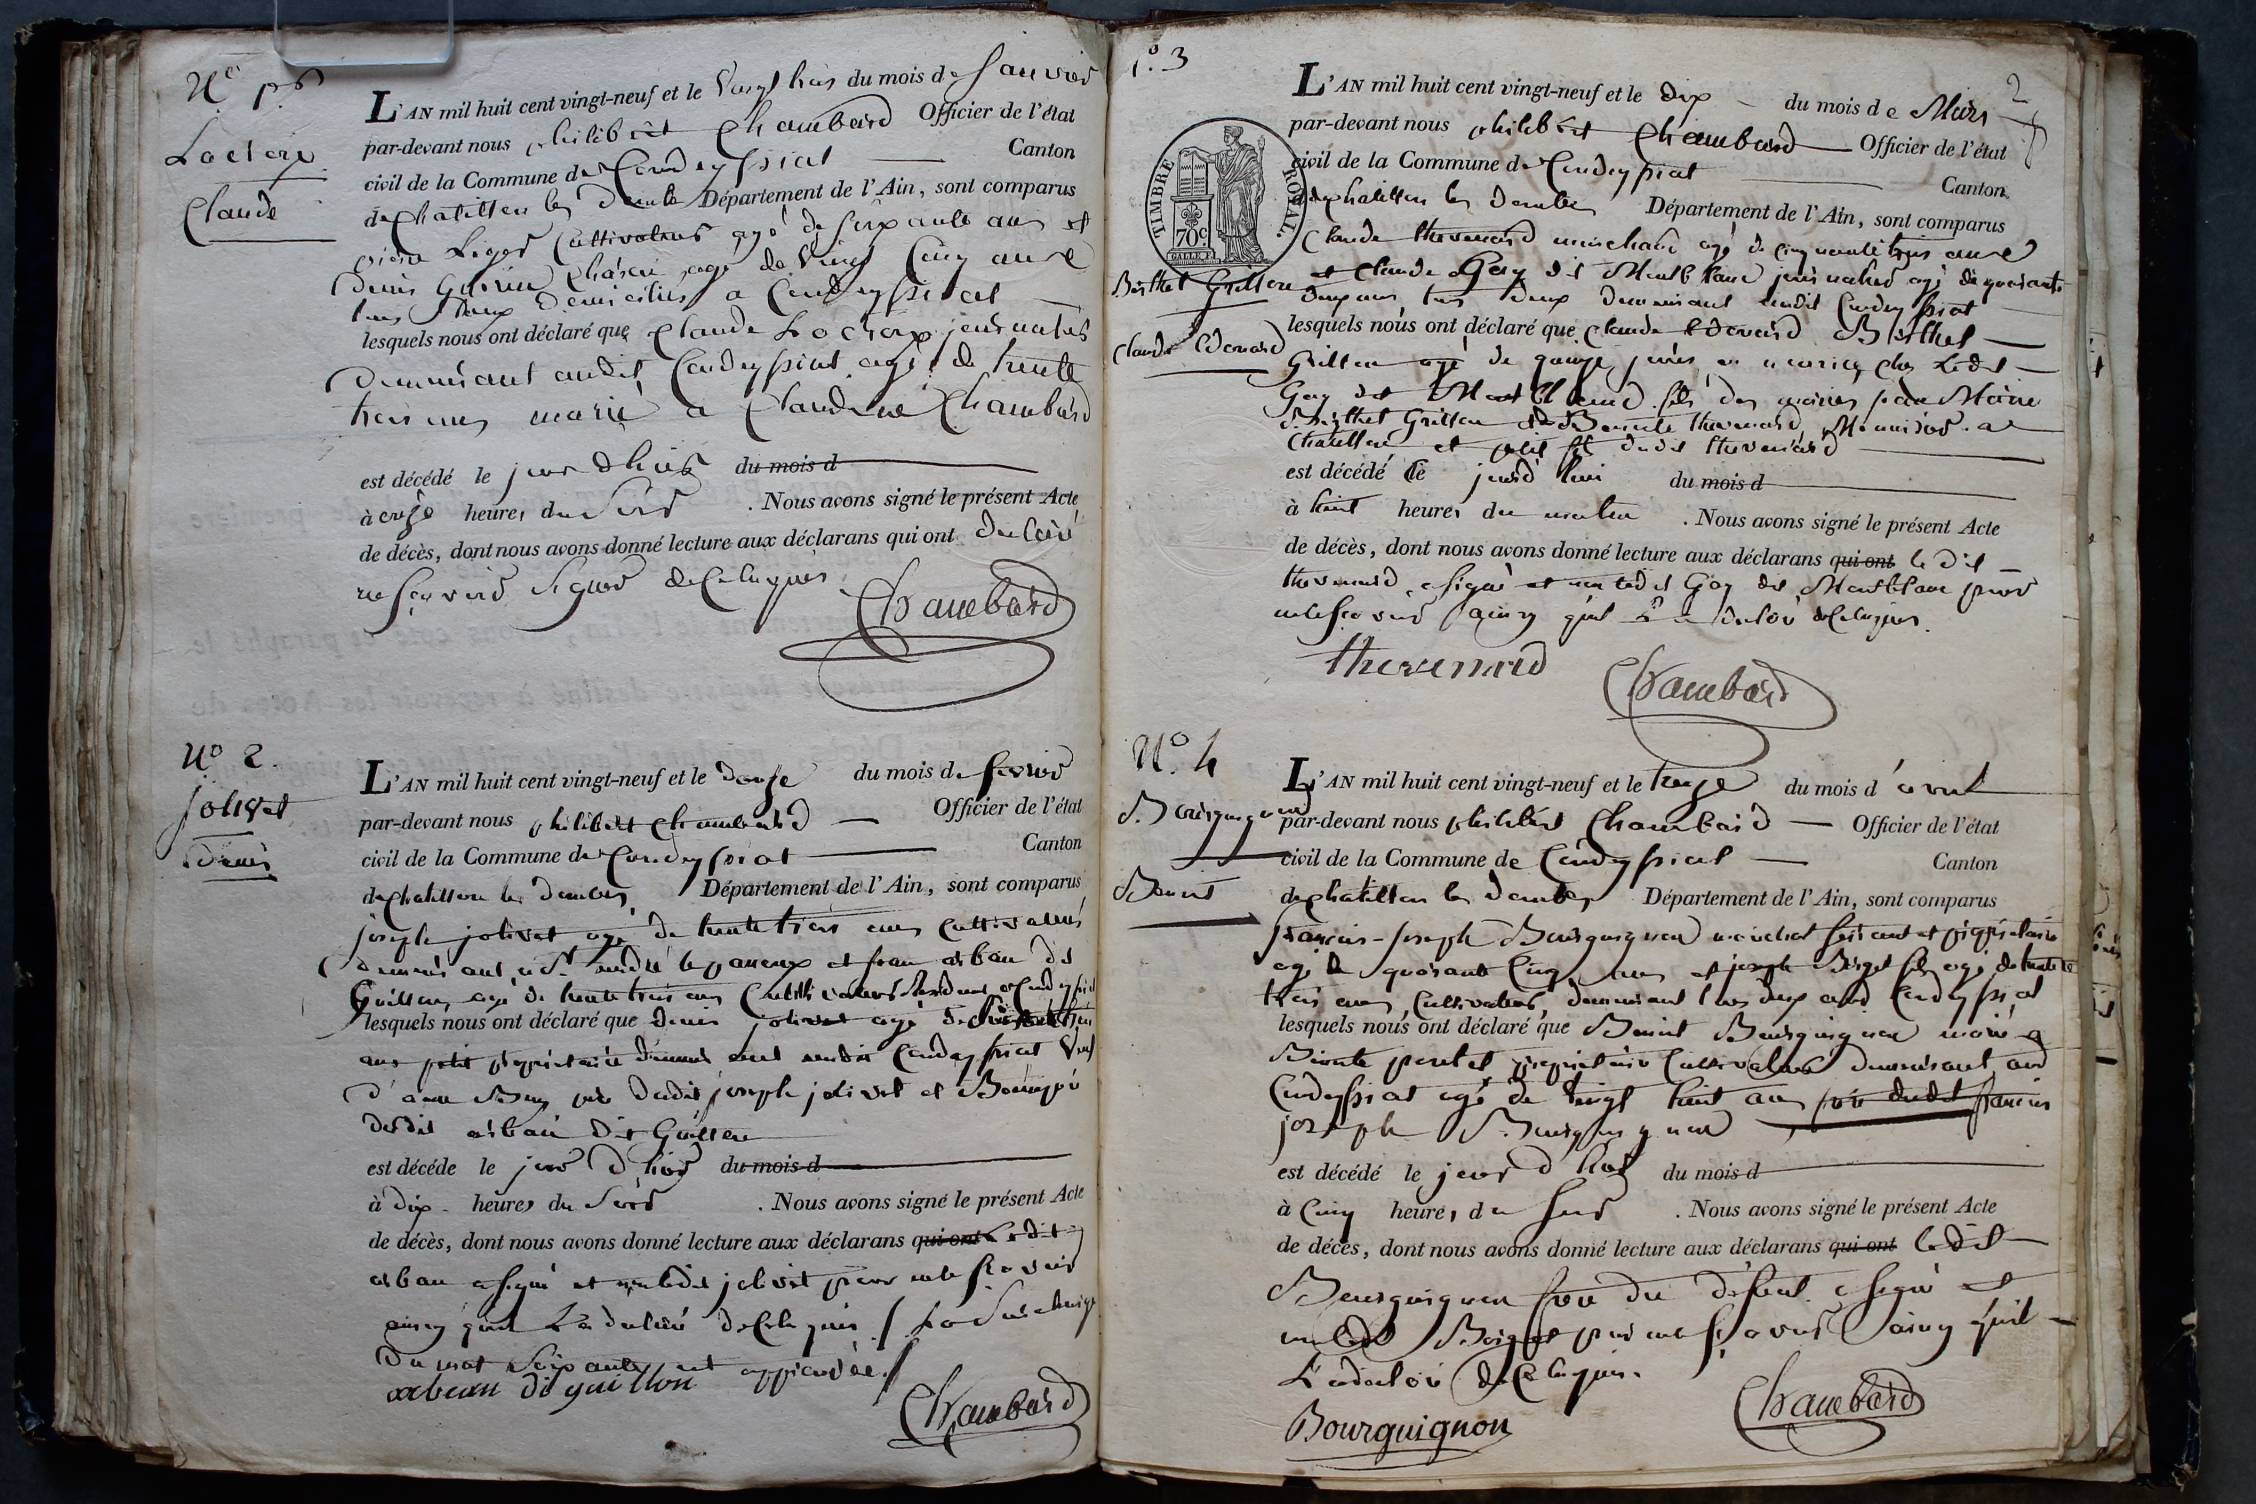 N° 1er
Lacroix
Claude
L'AN mil huit cent vingt-neuf et le vingt trois du mois de Janvier
par-devant nous philibert Chambard Officier de l'état
civil de la Commune de Condeyssiat Canton
de chatillon les Dombes Département de l'Ain, sont comparus
Léger Cultivateur agé de soixante ans et
Denis Guérin agé de vingt cinq ans
tous deux domiciliés a Condeyssiat
lesquels nous ont déclaré que Claude Lacroix journalier
demeurant audit Condeyssiat agé de trente
trois ans marié a Claudine Chambard
est décédé le jour d'hier du mois d
à onze heures du soir . Nous avons signé le présent Acte
de décès, dont nous avons donné lecture aux déclarans qui ont déclaré
ne savoir signer de ce enquis
Chambard
N° 2.
jolivet
denis
L'AN mil huit cent vingt-neuf et le douze du mois de fevrier
par-devant nous philibert Chambard Officier de l'état
civil de la Commune de Condeyssiat Canton
de chatillon les Dombes Département de l'Ain, sont comparus
joseph jolivet agé de trente trois ans cultivateur
demeurant a St andré le panoux et jean arban dit
Guillon agé de trente trois ans Cultivateur a Condeyssiat
lesquels nous ont déclaré que denis jolivet agé de
ans petit propriétaire demeurant audit Condeyssiat
père dudit joseph jolivet et
dudit arban dit Guillon
est décédé le jour d'hier du mois d
à dix heures du soir . Nous avons signé le présent Acte
de décès, dont nous avons donné lecture aux déclarans qui ont Ledit
arban a signé et non ledit jolivet pour ne le savoir
ainsy qu'il l'a déclaré de ce enquis / La surcharge
du mot soixante est approuvée /
arban di guillon
Chambard
N°. 3
2
TIMBRE ROYAL.
70c
Berthet Grillon
Claude Edouard
L'AN mil huit cent vingt-neuf et le dix du mois de Mars
par-devant nous philibert Chambard Officier de l'état
civil de la Commune de Condeyssiat Canton
de chatillon les Dombes Département de l'Ain, sont comparus
Claude thevenard marchand agé de cinquante trois ans
et Claude Gay dit Montblanc journalier agé de quarante
deux ans tous deux demeurant audit Condeyssiat
lesquels nous ont déclaré que Claude Edouard Berthet
Grillon agé de quinze jours en nourice chez Ledit
Gay dit Montblanc fils des mariés
Berthet Grillon et Benoite thevenard a
Chatillon et petit fils dudit thevenard
est décédé le jourd'hui du mois d
à huit heures du matin . Nous avons signé le présent Acte
de décès, dont nous avons donné lecture aux déclarans qui ont le dit
thevenard a signé et non ledit Gay dit Montblanc pour
ne le savoir ainsy qu'il l'a déclaré de ce enquis.
thevenard
Chambard
N°. 4
Bourguignon
Benoit
L'AN mil huit cent vingt-neuf et le treize du mois d'avril
par-devant nous philibert Chambard Officier de l'état
civil de la Commune de Condeyssiat Canton
de chatillon les Dombes Département de l'Ain, sont comparus
francois-joseph Bourguignon marechal ferrant et propriétaire
agé de quarante cinq ans et joseph fils agé de trente
trois ans cultivateur, demeurant tous deux aud Condeyssiat
lesquels nous ont déclaré que Benoit Bourguignon marié a
Benoite propriétaire Cultivateur demeurant aud
Condeyssiat agé de vingt huit ans frère dudit francois
joseph Bourguignon
est décédé le jour d'hier du mois d
à cinq heures du soir . Nous avons signé le présent Acte
de décès, dont nous avons donné lecture aux déclarans qui ont ledit
Bourguignon frère du défunt a signé et
non ledit pour ne savoir ainsy qu'il
L'a déclaré de ce enquis.
Bourguignon
Chambard